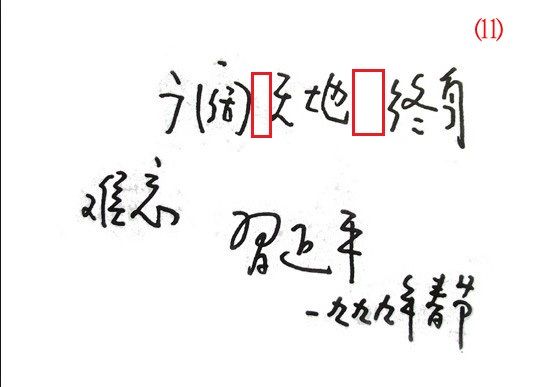 (11)
广阔天地终身
难忘
習近平
一九九九年春节